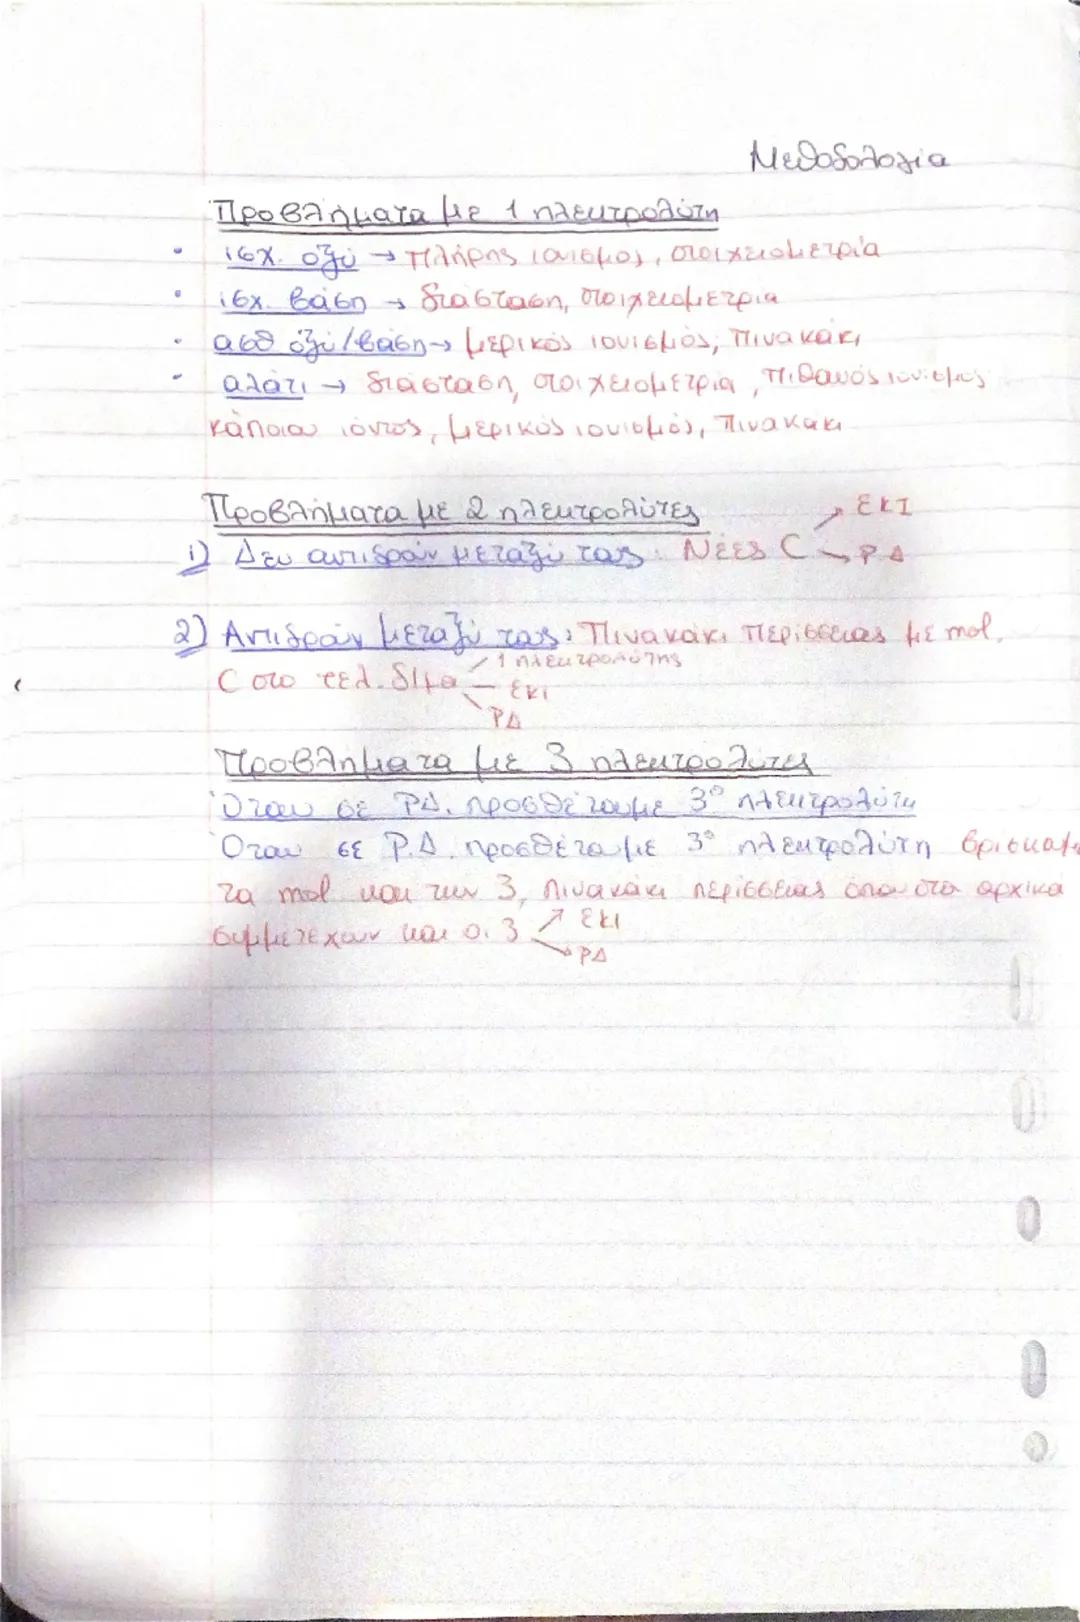 Μεθοδολογία
Προβλήματα με 1 ηλεκτρολύτη
• ισχ. οξύ → πλήρης ιονισμός, στοιχειομετρία
• ισχ. βάση → διάσταση, στοιχειομετρία
• ασθ οξύ/βάση → μερικός ιονισμός, πινακάκι
• αλάτι → διάσταση, στοιχειομετρία, πιθανός ιονισμός
κάποιου ιόντος, μερικός ιονισμός, πινακάκι
Προβλήματα με 2 ηλεκτρολύτες
1) Δεν αντιδρούν μεταξύ τους: Νέες C → ΕΚΙ
→ Ρ.Δ
2) Αντιδρούν μεταξύ τους: Πινακάκι περίσσειας με mol,
C στο τελ. δ/μα 1 ηλεκτρολύτης
ΕΚΙ
ΡΔ
Προβλήματα με 3 ηλεκτρολύτες
Όταν σε Ρ.Δ. προσθέτουμε 3º ηλεκτρολύτη
Όταν σε Ρ.Δ. προσθέτουμε 3º ηλεκτρολύτη βρίσκουμ
τα mol και των 3, πινακάκι περίσσειας όπου στα αρχικά
συμμετέχουν και οι 3 → ΕΚΙ
→ ΡΔ